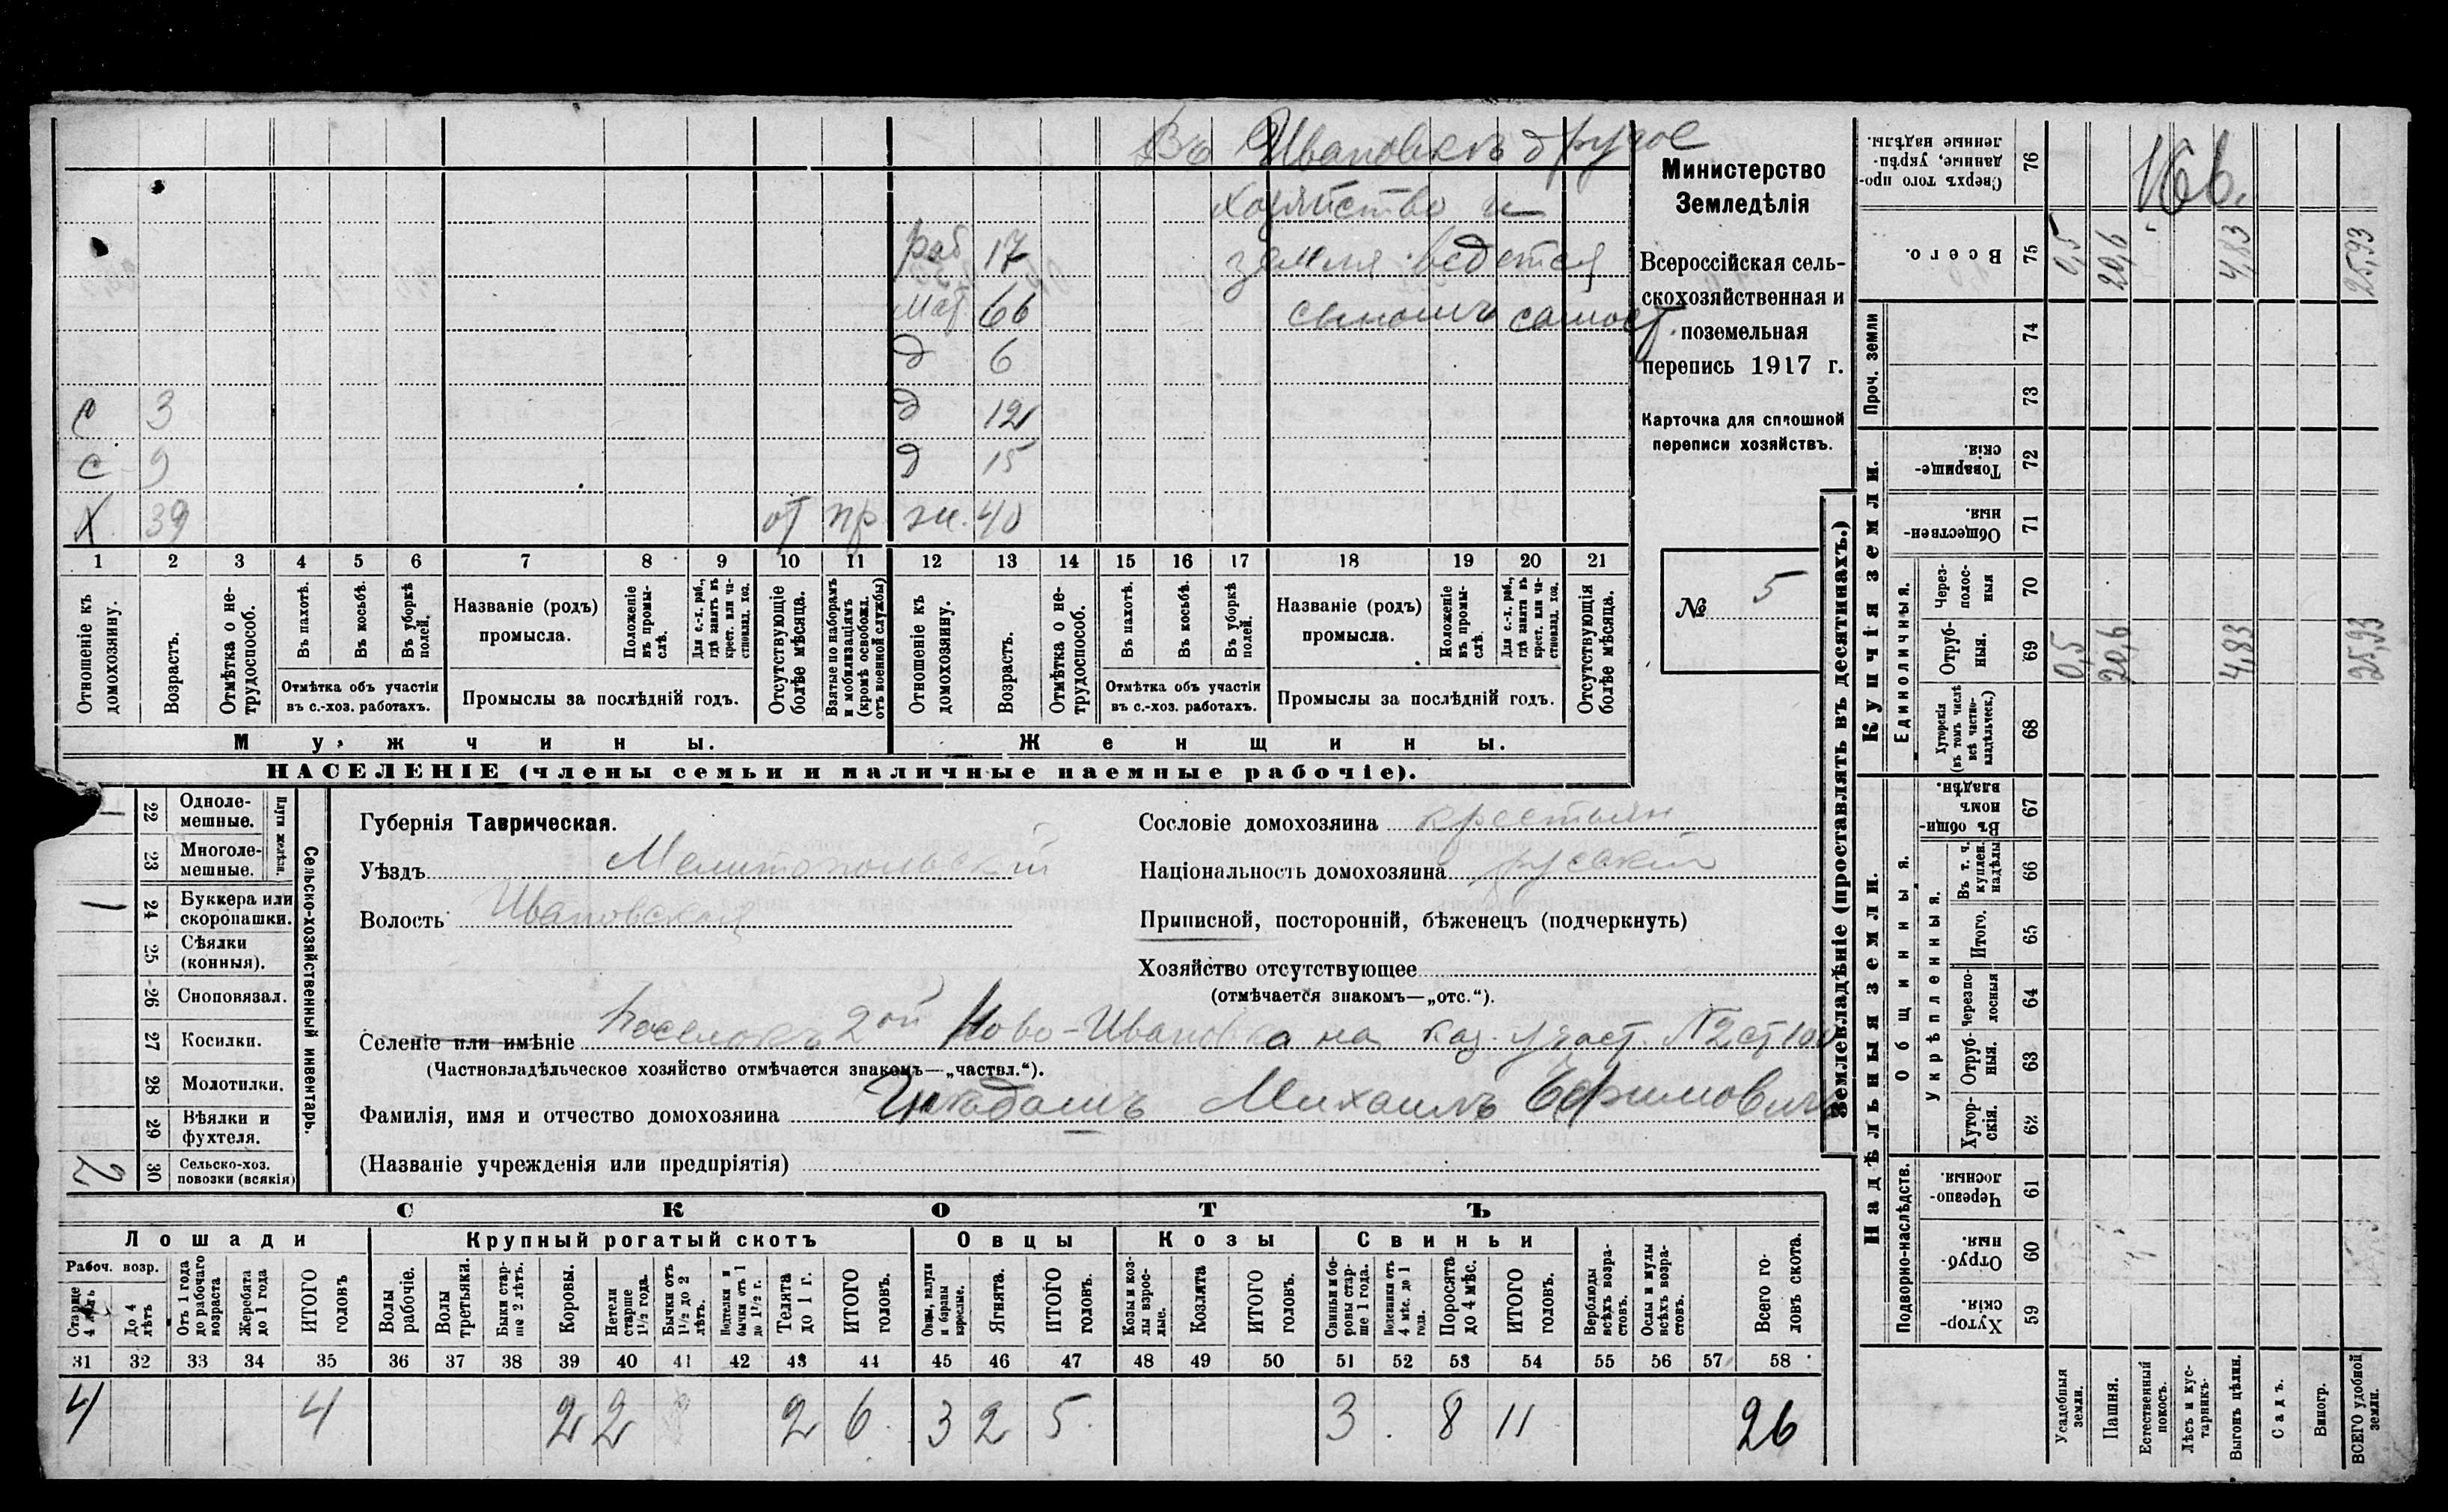 Въ Ивановкѣ другое
хозяйство и
земля ведется
сыномъ самост.
Министерство
Земледѣлія
Всероссійская сель-
скохозяйственная и
поземельная
перепись 1917 г.
Карточка для сплошной
переписи хозяйствъ.
№ 5
раб 17
мат 66
д 6
с 3 д 12
с 9 д 15
х 39 от пр ж. 40
1 2 3 4 5 6 7 8 9 10 11 12 13 14 15 16 17 18 19 20 21
Отношеніе къ домохозяину.
Возрастъ.
Отмѣтка о не-трудоспособ.
Въ пахотѣ.
Въ косьбѣ.
Въ уборкѣ полей.
Отмѣтка объ участіи
въ с.-хоз. работахъ.
Названіе (родъ)
промысла.
Положеніе въ промы-слѣ.
Для с.-х. раб., гдѣ занятъ въ крест. или ча-стновлад. хоз.
Промыслы за послѣдній годъ.
Отсутствующіе болѣе мѣсяца.
Взятые по наборамъ и мобилизаціямъ (кромѣ освобожд. отъ военной службы)
Отношеніе къ домохозяину.
Возрастъ.
Отмѣтка о не-трудоспособ.
Въ пахотѣ.
Въ косьбѣ.
Въ уборкѣ полей.
Отмѣтка объ участіи
въ с.-хоз. работахъ.
Названіе (родъ)
промысла.
Положеніе въ промы-слѣ.
Для с.-х. раб., гдѣ занята въ крест. или ча-стновлад. хоз.
Промыслы за послѣдній годъ.
Отсутствующія болѣе мѣсяца.
Мужчины.
Женщины.
НАСЕЛЕНІЕ (члены семьи и наличные наемные рабочіе).
Сельско-хозяйственный инвентарь.
Плуги желѣзн.
22 Однолемешные.
23 Многоле-мешные.
1 24 Буккера или скоропашки.
25 Сѣялки (конныя).
26 Сноповязал.
27 Косилки.
28 Молотилки.
29 Вѣялки и фухтеля.
2 30 Сельско-хоз. повозки (всякія)
Губернія Таврическая.
Уѣздъ Мелитопольскій
Волость Ивановская
Сословіе домохозяина крестьян
Національность домохозяина русскій
Приписной, посторонній, бѣженецъ (подчеркнуть)
Хозяйство отсутствующее
(отмѣчается знакомъ—„отс.“).
Селеніе или имѣніе Поселокъ 2ой Ново-Ивановка на каз. участ. №2 ст 100
(Частновладѣльческое хозяйство отмѣчается знакомъ—„частвл.“).
Фамилія, имя и отчество домохозяина Михаилъ Ефимовичъ
(Названіе учрежденія или предпріятія)
СКОТЪ
Лошади
Крупный рогатый скотъ
Овцы
Козы
Свиньи
Рабоч. возр.
Старше 4 лѣтъ
До 4 лѣтъ
Отъ 1 года до рабочаго возраста
Жеребята до 1 года
ИТОГО головъ
Волы рабочіе.
Волы третьяки.
Быки стар-ше 2 лѣтъ.
Коровы.
Нетели старше 1½ года.
Бычки отъ 1½ до 2 лѣтъ.
Подтелки и бычки отъ 1 до 1½ г.
Телята до 1 г.
ИТОГО головъ.
Овцы, валухи и бараны взрослые.
Ягнята.
ИТОГО головъ.
Козы и коз-лы взрос-лые.
Козлята
ИТОГО головъ.
Свиньи и бо-ровы стар-ше 1 года.
Подсвинки отъ 4 мѣс. до 1 года.
Поросята до 4 мѣс.
ИТОГО головъ.
Верблюды всѣхъ возра-стовъ.
Ослы и мулы всѣхъ возра-стовъ.
Всего го-ловъ скота.
31 32 33 34 35 36 37 38 39 40 41 42 43 44 45 46 47 48 49 50 51 52 53 54 55 56 57 58
4 4 2 2 2 6 3 2 5 3 8 11 26
Землевладѣніе (проставлять въ десятинахъ.)
Надѣльныя земли.
Купчія земли.
Проч. земли
Подворно-наслѣдств.
Общинныя.
Укрѣпленныя.
Единоличныя.
59 Хутор-скія.
60 Отруб-ныя.
61 Черезпо-лосныя.
62 Хутор-скія.
63 Отруб-ныя.
64 Черезпо-лосныя
65 Итого.
66 Въ т. ч. куплен. надѣлы
67 Въ общи-номъ владѣн.
68 Хуторскія (въ томъ числѣ всѣ частно-владѣльческ.)
69 Отруб-ныя. 0,5 20,6 4,83 25,93
70 Через-полос-ныя
71 Обществен-ныя.
72 Товарище-скія.
73
74
75 Всего. 0,5 20,6 4,83 25,93
76 Сверхъ того про-данные, укрѣп-ленные надѣлы.
16 б.
Усадебныя земли.
Пашня.
Естественный покосъ.
Лѣсъ и кус-тарникъ.
Выгонъ цѣлин.
Садъ.
Виногр.
ВСЕГО удобной земли.